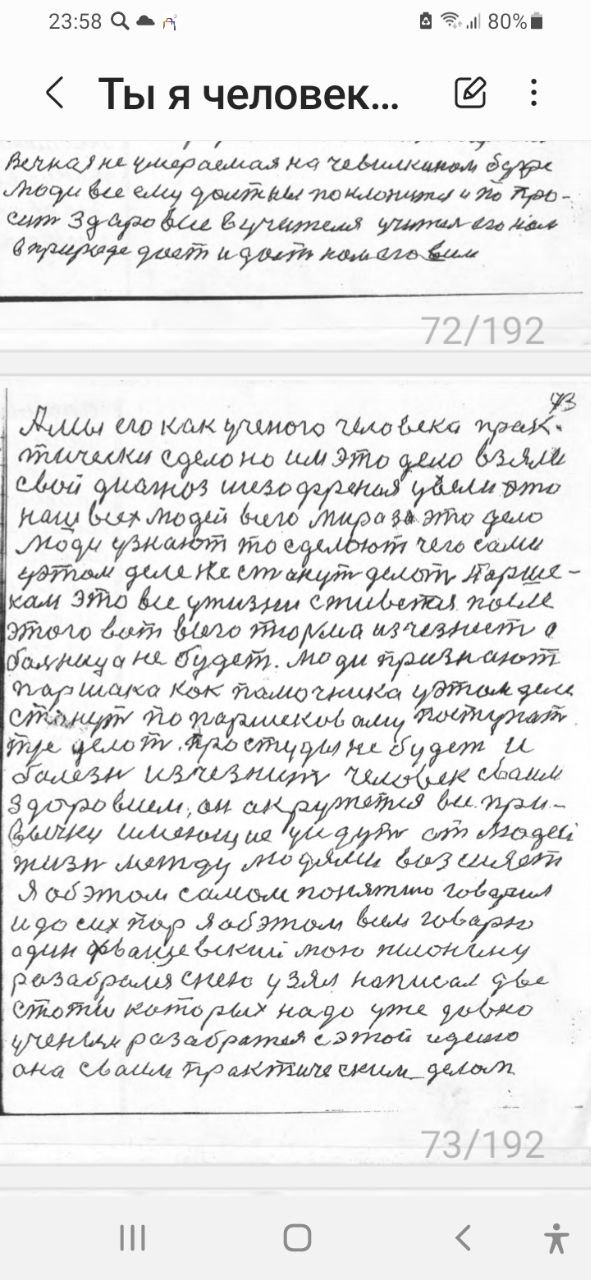 23:58 80%
Ты я человек...
Вечная не умераемая на чевилкином бугре
люди все ему должны поклонится и по про-
сит здаровие вучителя учител его нам
в природе даст и даст нам его всим
72/192
73
А мы его как ученого человека прак-
тически сделоно им это дело взяли
свой диагноз шезофреная увели это
наш всех людей всего мира за это дело
люди узнают то сделоют чего сами
уэтом деле не станут делот Парше-
кам это все ужизни стивется после
этого вот всего тюрма изчезнет а
балница не будет. люди признают
паршака как памочника уэтом деле
станут по паршековаму поступат
тже делот. простуды не будет и
болезн изчезнит человек сваим
здоровием, он акружется все при-
вычку имеющие уйдут от людей
жизн между людями возсияет
Я обэтом самом понятно говарил
и до сих пор я обэтом всим говарю
один фванцевский мою
разабрался снею узял написал две
стати которых надо уже давно
ученым разабратся с этой идеию
она сваим практическим делом
73/192